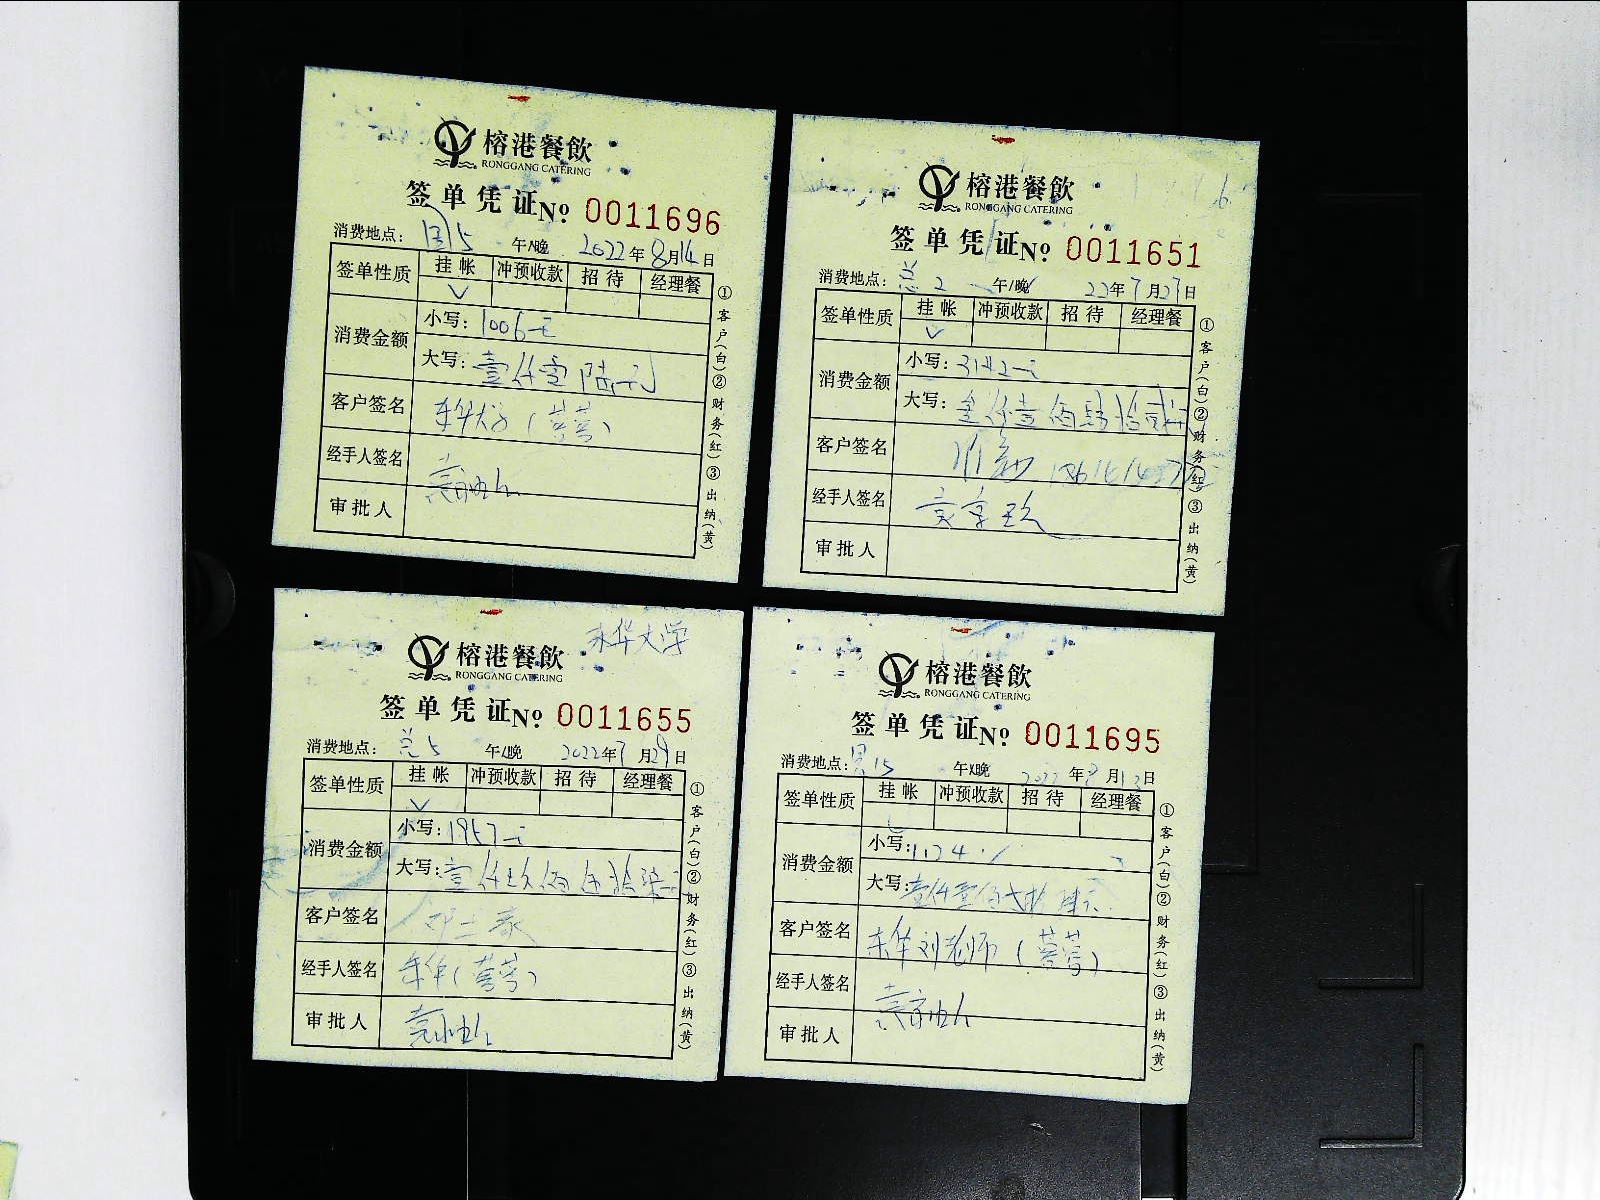 榕港餐飲
RONGGANG CATERING
签单凭证 № 0011696
消费地点: 午/晚 2022年8月14日
签单性质 挂帐 冲预收款 招待 经理餐
消费金额 小写: 1006-
大写: 壹仟零陆元
客户签名
经手人签名
审批人
①客户(白)②财务(红)③出纳(黄)
榕港餐飲
RONGGANG CATERING
签单凭证 № 0011651
消费地点: 总2 午/晚 22年7月27日
签单性质 挂帐 冲预收款 招待 经理餐
消费金额 小写: 3142-
大写: 叁仟壹佰肆拾贰
客户签名
经手人签名
审批人
①客户(白)②财务(红)③出纳(黄)
东华大学
榕港餐飲
RONGGANG CATERING
签单凭证 № 0011655
消费地点: 总5 午/晚 2022年7月29日
签单性质 挂帐 冲预收款 招待 经理餐
消费金额 小写: 1957-
大写: 壹仟玖佰伍拾柒
客户签名
经手人签名 东华(蓉蓉)
审批人
①客户(白)②财务(红)③出纳(黄)
榕港餐飲
RONGGANG CATERING
签单凭证 № 0011695
消费地点: 午/晚 2022年8月13日
签单性质 挂帐 冲预收款 招待 经理餐
消费金额 小写: 1124
大写: 壹仟壹佰贰拾肆元
客户签名 东华刘老师(蓉蓉)
经手人签名
审批人
①客户(白)②财务(红)③出纳(黄)